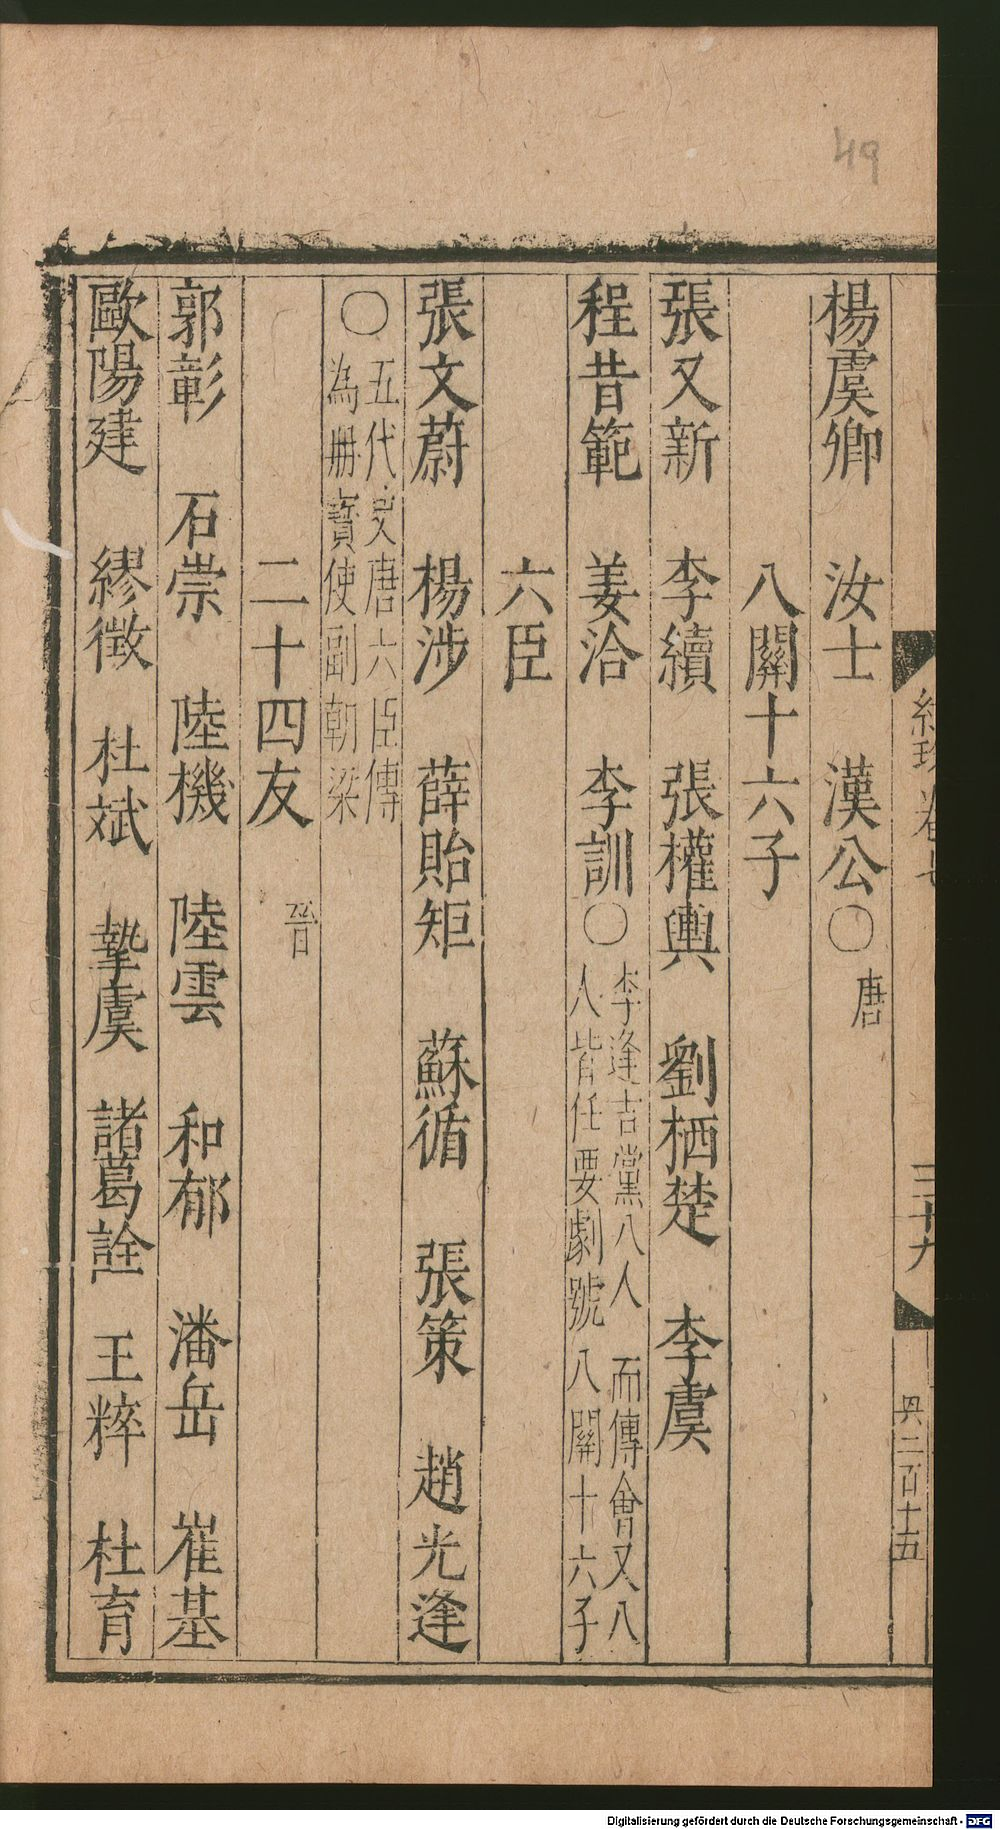 49
卷七
三十九
二百十五
楊虞卿　汝士　漢公〇唐
八關十六子
張又新　李續　張權輿　劉栖楚　李虞
程昔範　姜洽　李訓〇李逢吉黨八人而傅會又八
人皆任要劇號八關十六子
六臣
張文蔚　楊涉　薛貽矩　蘇循　張策　趙光逢
〇五代史唐六臣傳
為冊寶使副朝梁
二十四友　晉
郭彰　石崇　陸機　陸雲　和郁　潘岳　崔基
歐陽建　繆徵　杜斌　摯虞　諸葛詮　王粹　杜育
Digitalisierung gefördert durch die Deutsche Forschungsgemeinschaft - DFG